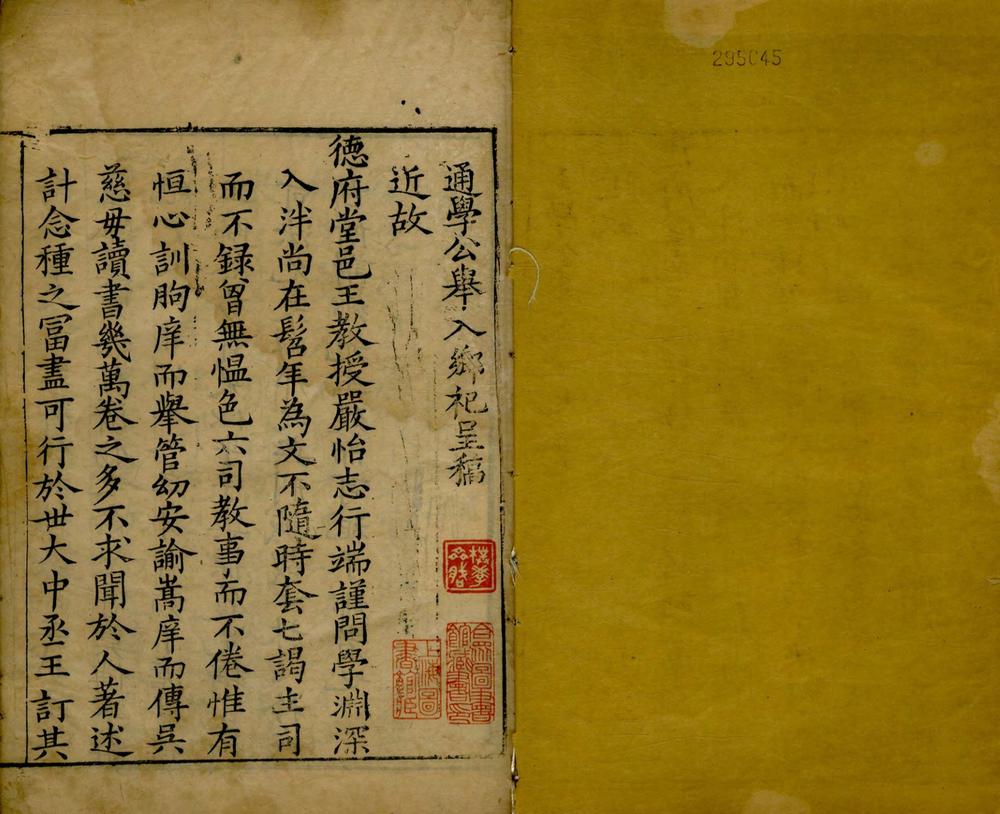 295045
通學公舉入鄉祀呈稿
近故
德府堂邑王教授嚴怡志行端謹問學淵深
入泮尚在髫年為文不隨時套七謁主司
而不録曾無愠色六司教事而不倦惟有
恒心訓朐庠而舉管幼安諭嵩庠而傳吳
慈毋讀書幾萬卷之多不求聞於人著述
計念種之冨盡可行於世大中丞王訂其
上海圖書館藏